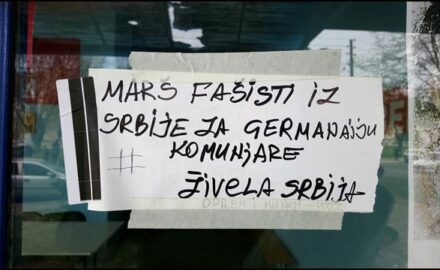 MARŠ FAŠISTI IZ
SRBIJE ZA GERMANAIJU
# KOMUNJARE
ŽIVELA SRBIJA